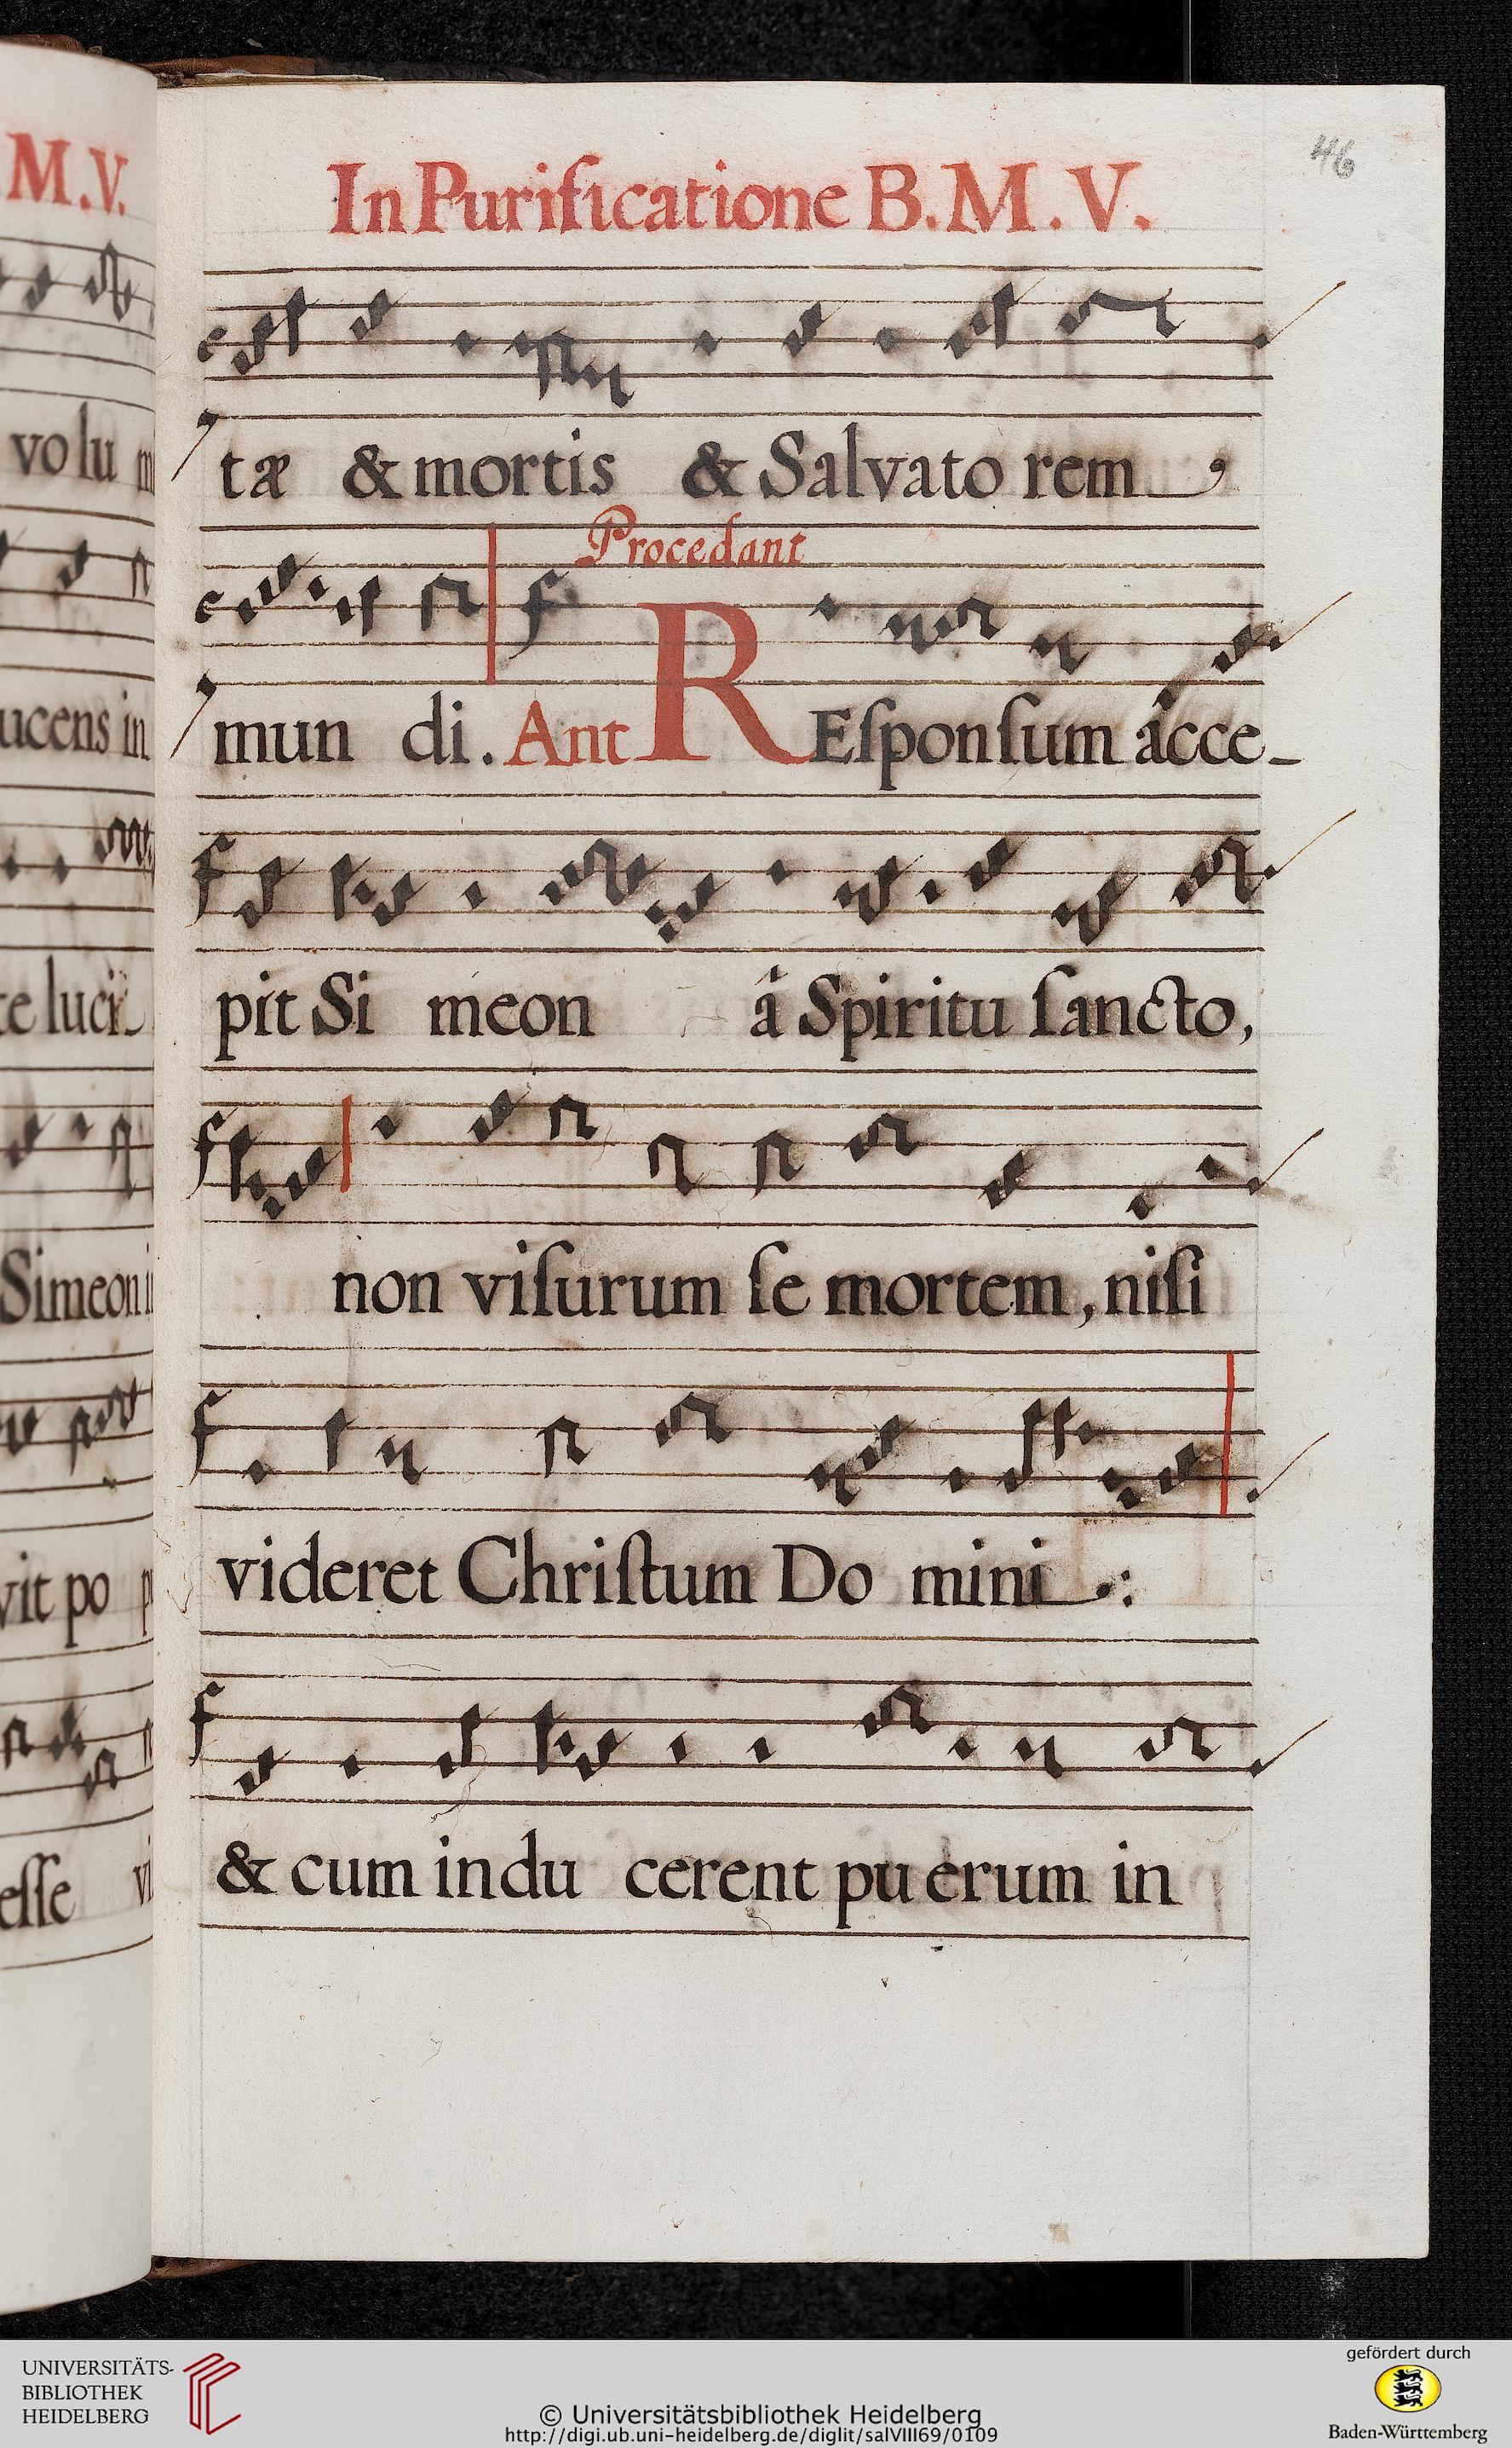 M.V.
volu
ucens in
te luci
Simeon
vit po
esse
46
In Purificatione B. M. V.
tæ & mortis & Salvato rem
Procedant
mun di. Ant REſponſum âcce-
pit Si meon â Spiritu ſancto,
non viſurum ſe mortem, niſi
videret Chriſtum Do mini.:
& cum indu cerent pu erum in
UNIVERSITÄTS-
BIBLIOTHEK
HEIDELBERG
© Universitätsbibliothek Heidelberg
http://digi.ub.uni-heidelberg.de/diglit/salVIII69/0109
gefördert durch
Baden-Württemberg